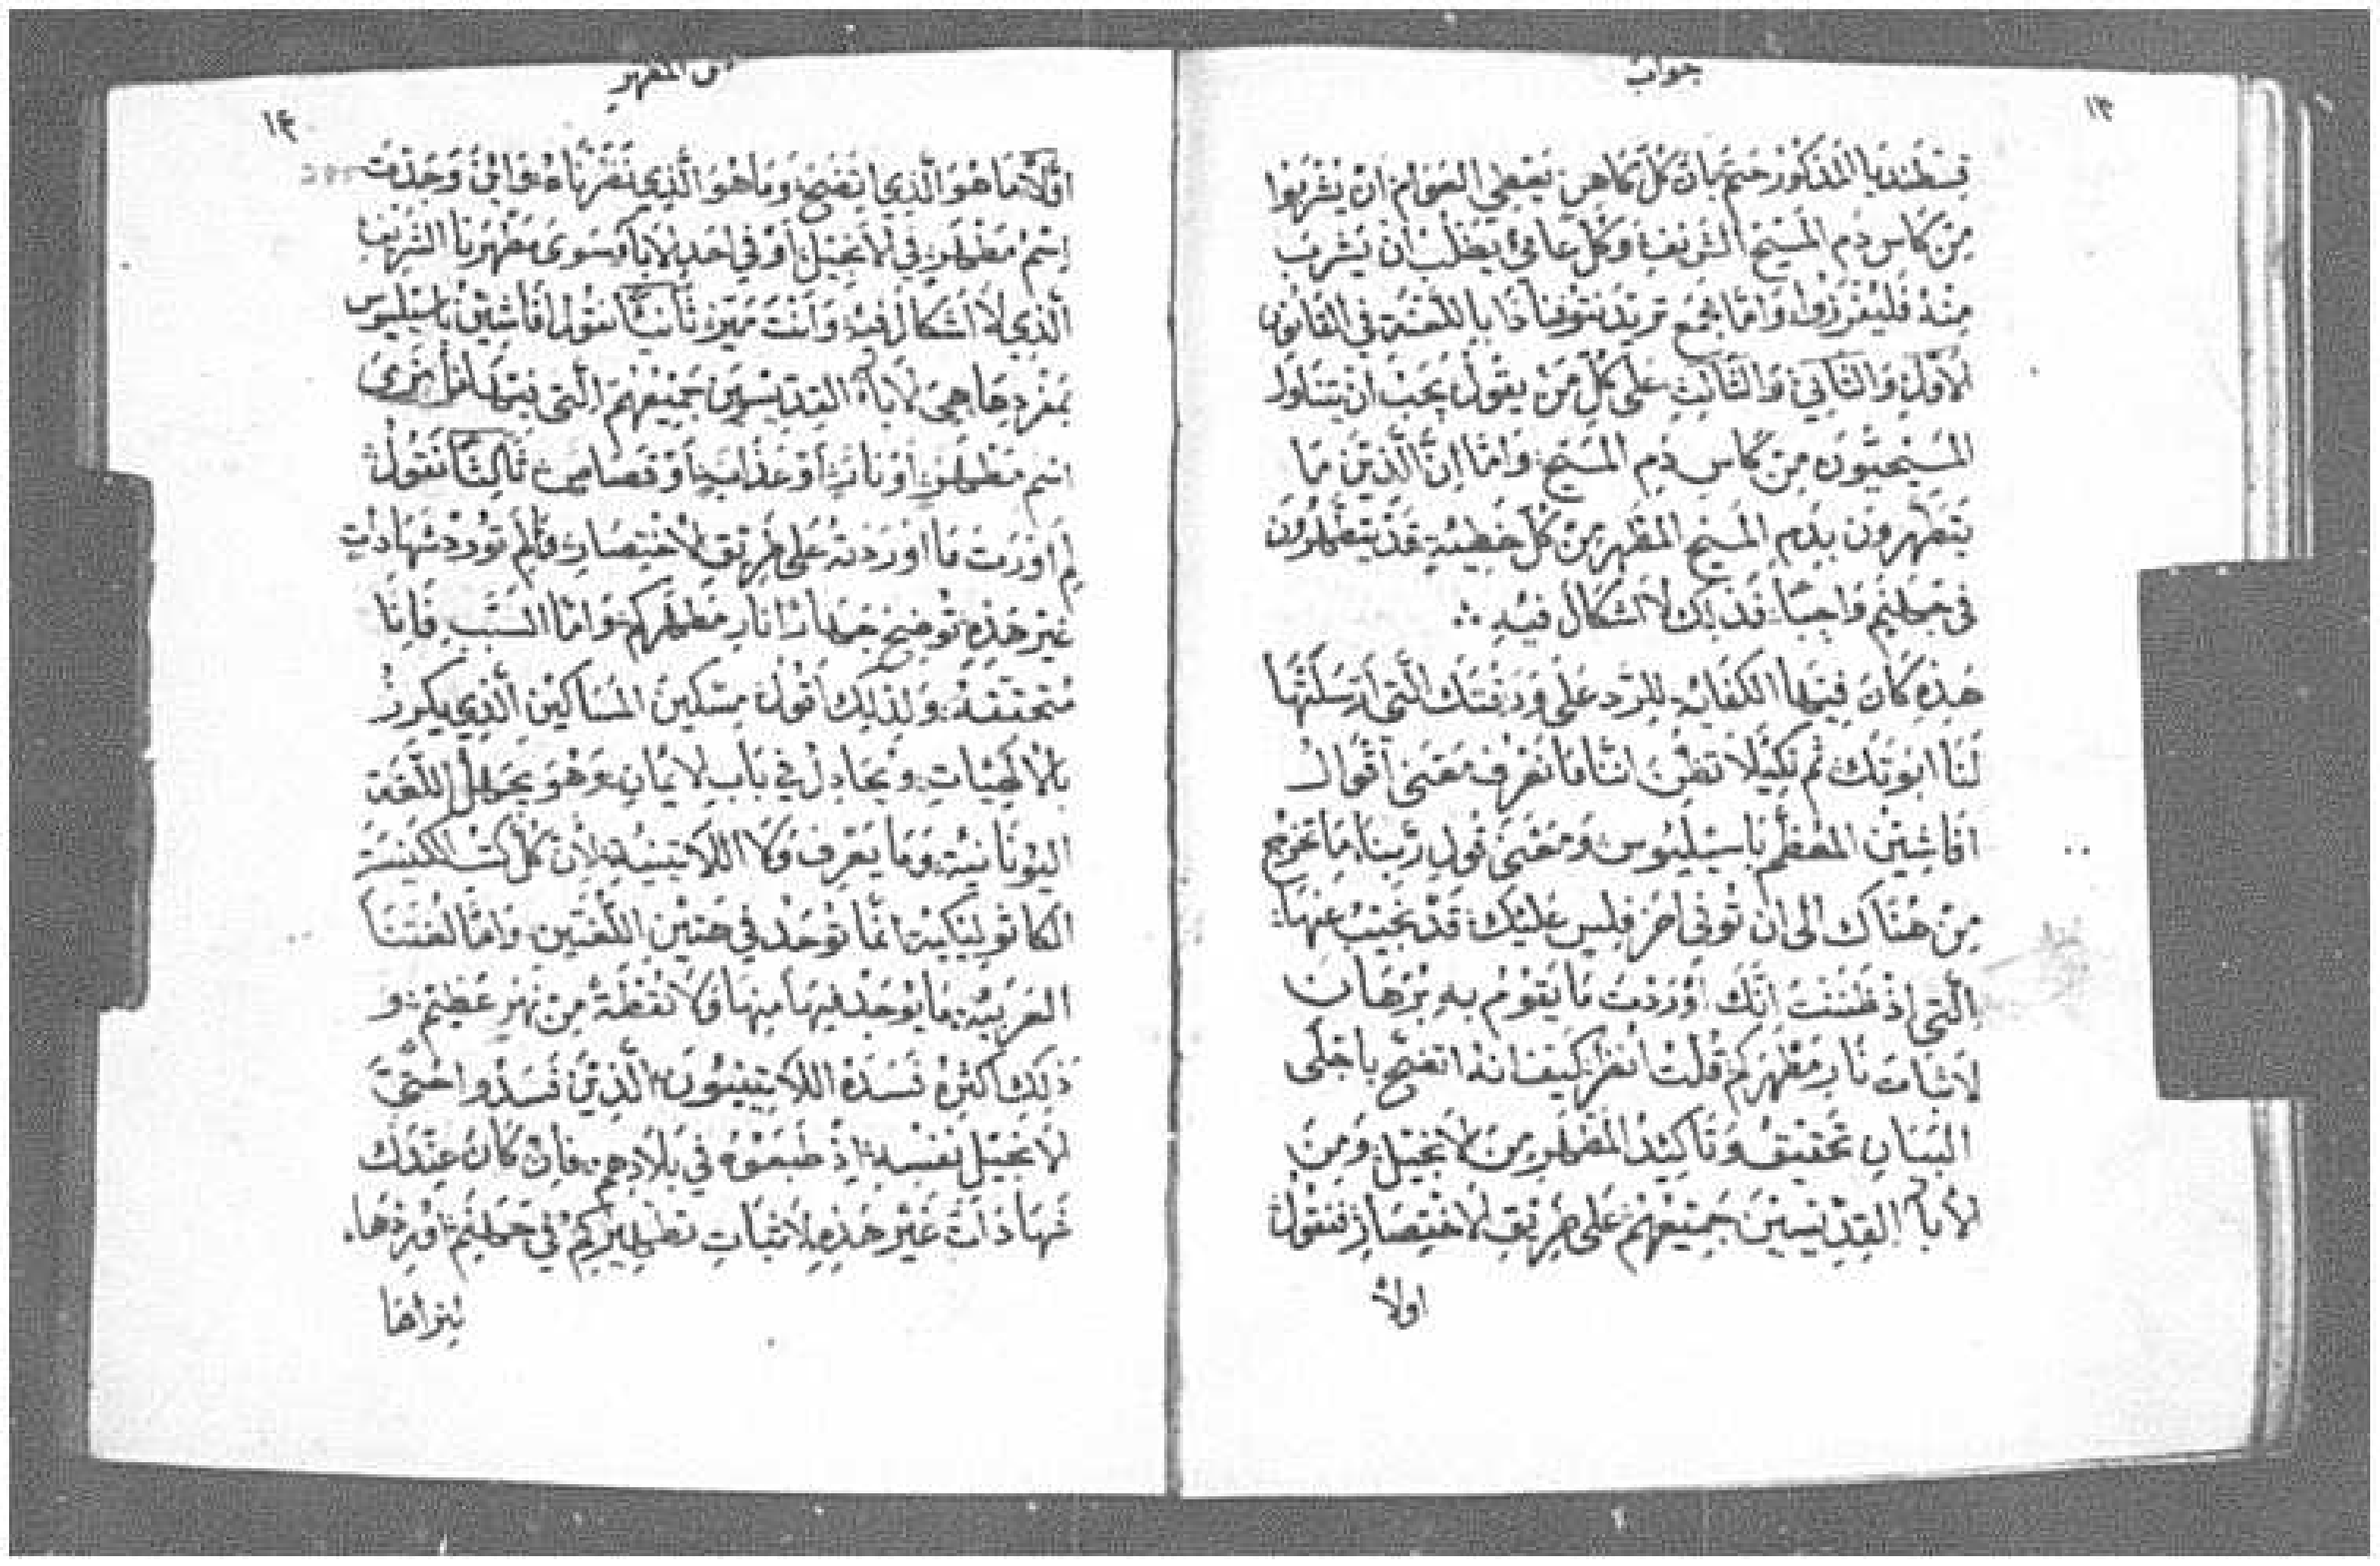 جواب
١٣
قسطنديا المذكور حتم بان كل كاهن يعطي العوام ان يشربوا
من كاس دم المسيح الشريف وكل عامي يطلب ان يشرب
منه فليفرزوا واما مجمع تريدنتو فنادا باللعنة في القانون
الاول والثاني والثالث على كل من يقول يجب ان يتناول
المسيحيون من كاس دم المسيح واما ان الذين ما
يتطهرون بدم المسيح المطهر من كل خطيه قد يتطهرون
في جهنم واجبا فذلك لا اشكال فيه
هذه كان فيها الكفايه للرد على ورقتك التي ارسلتها
لنا ابوتك ثم لكيلا تظن اننا ما نعرف معنى اقوال
افاشين المعظم باسيليوس ومعنى قول ربنا ما تخرج
من هناك الى ان توفي اخر فلس عليك قد نجيب عنها
التي اذ ظننت انك اوردت ما يقوم به برهان
لاثبات نار مطهركم قلت انظر كيف انه اتضح باجلى
البيان تحقيق وتاكيد المطهر من الانجيل ومن
الاباء القديسين جميعهم على طريق الاختصار فنقول
اولا
المطهر
١٤
اولا ما هو الذي اتضح وما هو الذي نظرناه واين وجدت
اسم مطهر في الانجيل او في احد الاباء سوى مطهرنا الشريف
الذي لا اشكال فيه وانت ميزه ثانيا نقول افاشين باسيليوس
بمفرده ما هي الاباء القديسين جميعهم التي فيها لم نرى
اسم مطهر او نار او عذاب او قصاص ثالثا نقول
لم اوردت ما اوردته على طريق الاختصار ولم تورد شهادات
غير هذه توضح جهارا نار مطهركم واما السبب فانا
متحققه ولذلك اقول مسكين المساكين الذي يكرز
بالالهيات ويجادل في باب الايمان وهو يجهل اللغة
اليونانية وما يعرف ولا اللاتينيه لان كل كتب الكنيسة
الكاثوليكية انما توجد في هتين اللغتين واما لغتنا
العربيه ما يوجد فيها منها ولا نقطة من نهر عظيم و
ذلك اكثره فسده اللاتينيون الذين فسدوا حتى
الانجيل نفسه اذ طبعوه في بلادهم فان كان عندك
شهادات غير هذه لاثبات تطهيركم في جهنم اوردها